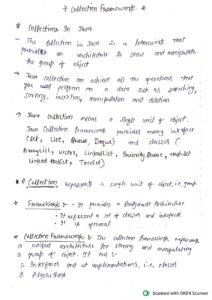 * Collection Framework *
* Collections In Java
- The Collection in Java is a framework that provides an architecture to store and manipulate the group of object
→ Java Collection can achieve all the operations that you perform on a data such as searching, sorting, insertion, manipulation and deletion
→ Java Collection means a single unit of object. Java Collection framework provides many interface (Set, List, Queue, Deque) and classes (ArrayList, Vector, LinkedList, PriorityQueue, HashSet, LinkedHashSet, TreeSet)
* A Collection represents a single unit of object, i.e. group
* Framework :- • It provides readymade Architecture
• It represent a set of classes and interfaces
• It is optional
* Collection Framework :- The Collection framework represents a unified architecture for storing and manipulating a group of object. It has :-
1. Interfaces and its implementations, i.e., classes
2. Algorithm
Scanned with OKEN Scanner